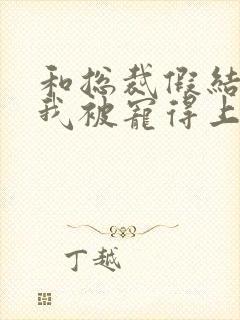 和总裁假结
我被宠得上
丁越